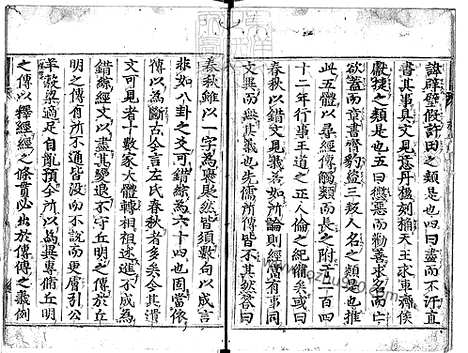 諱辟璧假許田之類是也四曰盡而不汙直
書其事具文見意丹楹刻桷天王求車齊侯
獻捷之類是也五曰懲惡而勸善求名而亡
欲蓋而章書齊豹盜三叛人名之類是也推
此五體以尋經傳觸類而長之附于二百四
十二年行事王道之正人倫之紀備矣或曰
春秋以錯文見義若如所論則經當有事同
文異而無其義也先儒所傳皆不其然答曰
春秋雖以一字為褒貶然皆須數句以成言
非如八卦之爻可錯綜為六十四也固當依
傳以為斷古今言左氏春秋者多矣今其遺
文可見者十數家大體轉相祖述進不成為
錯綜經文以盡其變退不守丘明之傳於丘
明之傳有所不通皆沒而不說而更膚引公
羊穀梁適足自亂預今所以為異專脩丘明
之傳以釋經經之條貫必出於傳傳之義例